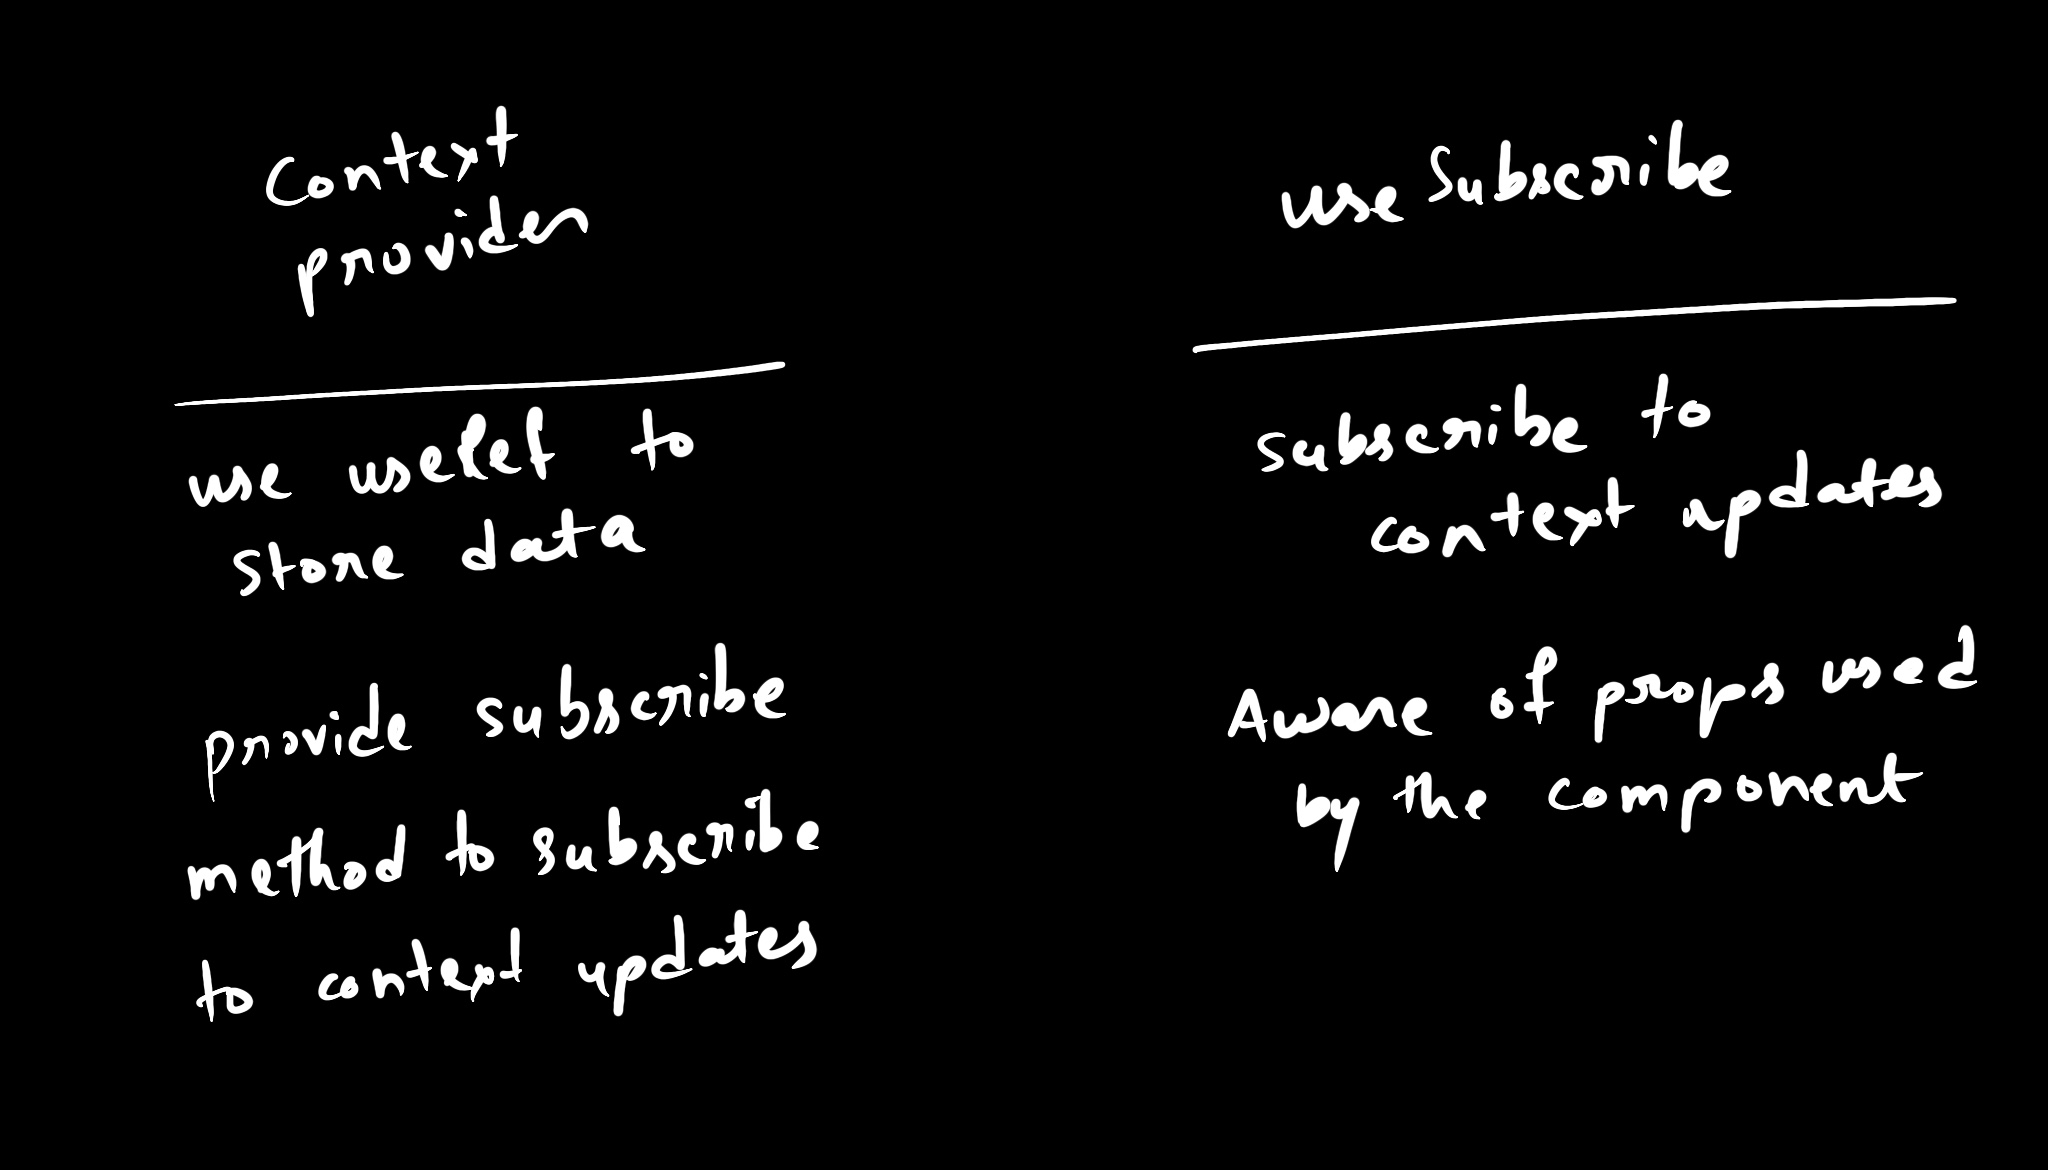 Context
provider
use useRef to
store data
provide subscribe
method to subscribe
to context updates
use Subscribe
subscribe to
context updates
Aware of props used
by the component